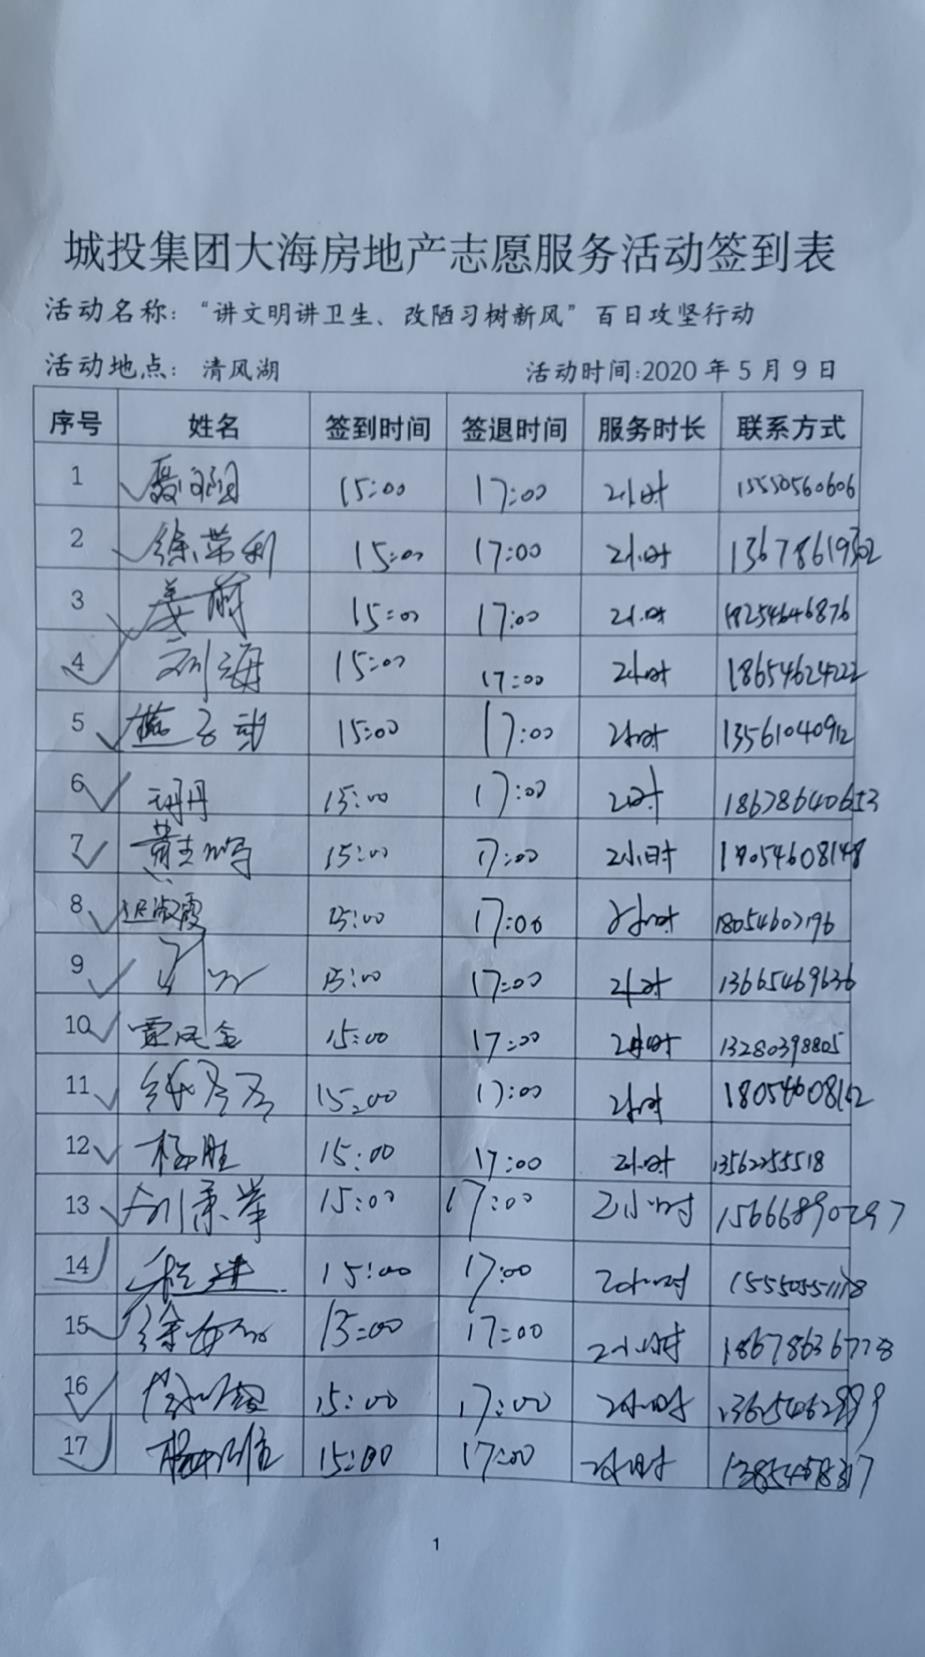 城投集团大海房地产志愿服务活动签到表
活动名称：“讲文明讲卫生、改陋习树新风”百日攻坚行动
活动地点：清风湖 活动时间:2020 年 5 月 9 日
序号 姓名 签到时间 签退时间 服务时长 联系方式
1 15:00 17:00 2小时 15550560606
2 徐荣利 15:00 17:00 2小时
3 姜前 15:00 17:00 2小时 18254646876
4 刘海 15:00 17:00 2小时 18654624222
5 15:00 17:00 2小时 13561040912
6 15:00 17:00 2小时 18678640653
7 15:00 17:00 2小时 18054608148
8 迟淑霞 15:00 17:00 2小时 18054607196
9 15:00 17:00 2小时 13665469636
10 15:00 17:00 2小时 13280398805
11 15:00 17:00 2小时 18054608162
12 杨胜 15:00 17:00 2小时 13562255518
13 刘秉举 15:00 17:00 2小时 15666890297
14 程建 15:00 17:00 2小时 15550551118
15 15:00 17:00 2小时 18678636778
16 15:00 17:00 2小时
17 15:00 17:00 2小时
1